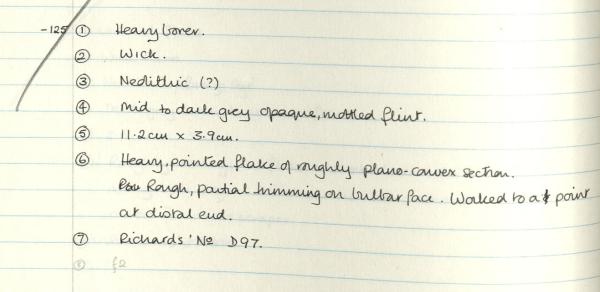 -125 ① Heavy borer.
② Wick.
③ Neolithic (?)
④ Mid to dark grey opaque, mottled flint.
⑤ 11.2cm x 3.9cm.
⑥ Heavy, pointed flake of roughly plano-convex section.
Rough, partial trimming on bulbar face. Worked to a point
at distal end.
⑦ Richards' No D97.
⑧ f2